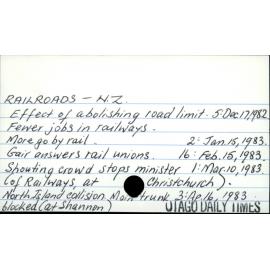 RAILROADS - N.Z.
Effect of abolishing road limit. 5: Dec 17, 1982
Fewer jobs in railways.
More go by rail. 2: Jan. 15, 1983.
Gair answers rail unions. 16: Feb. 15, 1983.
Shouting crowd stops minister 1: Mar. 10, 1983.
(of Railways, at Christchurch).
North Island collision Main trunk 3: Ap 16, 1983
blocked (at Shannon) OTAGO DAILY TIMES